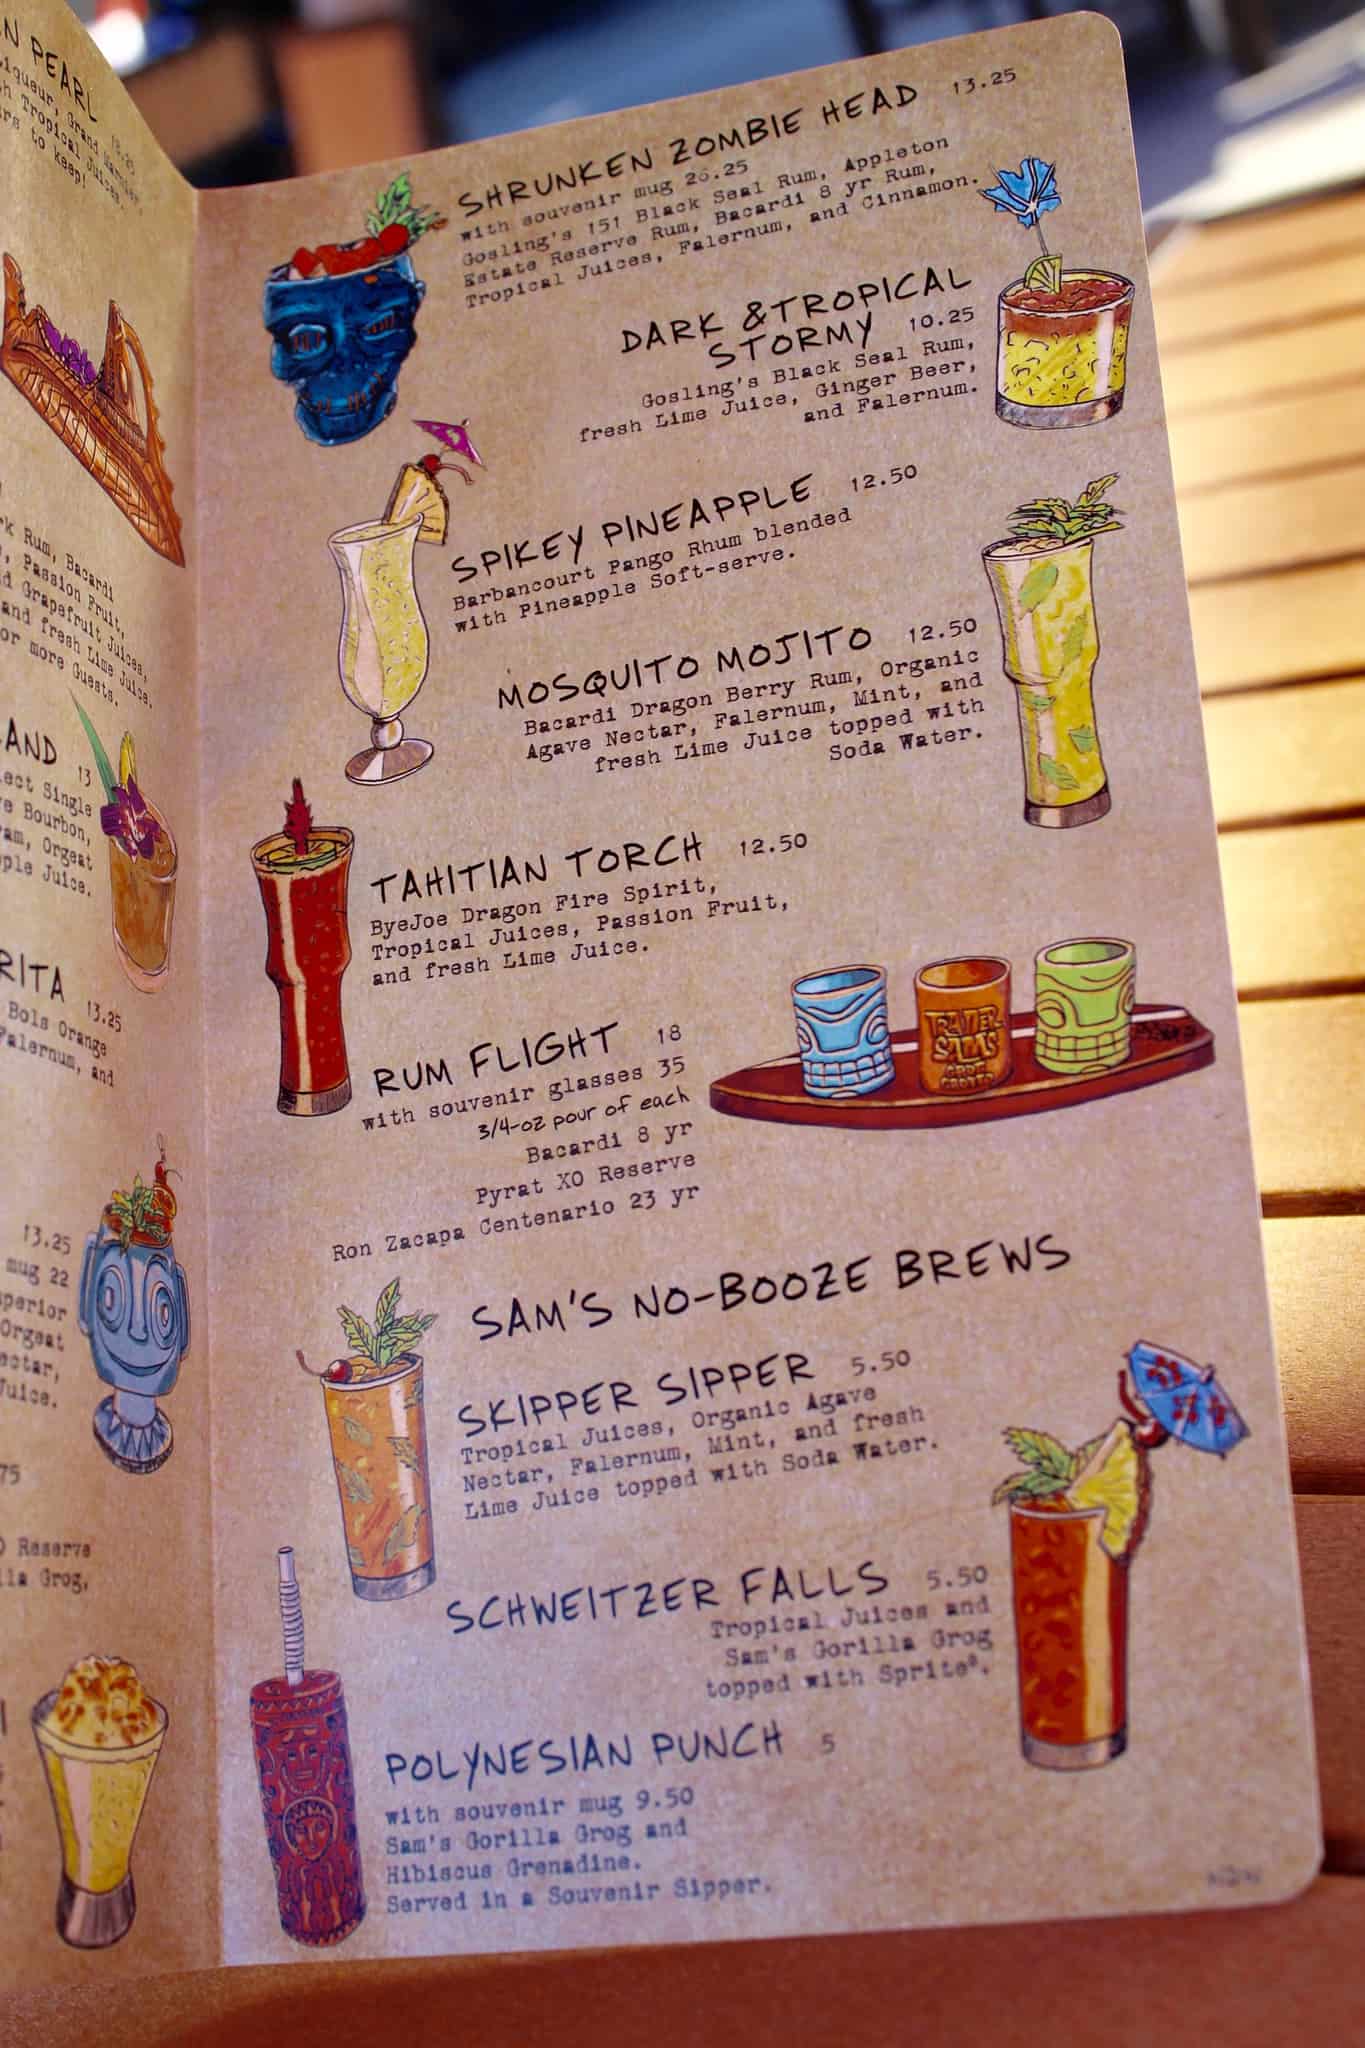 N PEARL 18.25
Liqueur, Grand Marnier,
Tropical Juices.
to keep!
rk Rum, Bacardi
Passion Fruit,
d Grapefruit Juices,
and fresh Lime Juice.
or more Guests.
AND 13
ect Single
e Bourbon,
am, Orgeat
ple Juice.
RITA 13.25
Bols Orange
Falernum, and
13.25
mug 22
perior
Orgeat
ectar,
Juice.
75
O Reserve
lla Grog,
SHRUNKEN ZOMBIE HEAD 13.25
with souvenir mug 26.25
Gosling's 151 Black Seal Rum, Appleton
Estate Reserve Rum, Bacardi 8 yr Rum,
Tropical Juices, Falernum, and Cinnamon.
DARK & TROPICAL
STORMY 10.25
Gosling's Black Seal Rum,
fresh Lime Juice, Ginger Beer,
and Falernum.
SPIKEY PINEAPPLE 12.50
Barbancourt Pango Rhum blended
with Pineapple Soft-serve.
MOSQUITO MOJITO 12.50
Bacardi Dragon Berry Rum, Organic
Agave Nectar, Falernum, Mint, and
fresh Lime Juice topped with
Soda Water.
TAHITIAN TORCH 12.50
ByeJoe Dragon Fire Spirit,
Tropical Juices, Passion Fruit,
and fresh Lime Juice.
TRADER
SAM'S
GROG
GROTTO
RUM FLIGHT 18
with souvenir glasses 35
3/4-oz pour of each
Bacardi 8 yr
Pyrat XO Reserve
Ron Zacapa Centenario 23 yr
SAM'S NO-BOOZE BREWS
SKIPPER SIPPER 5.50
Tropical Juices, Organic Agave
Nectar, Falernum, Mint, and fresh
Lime Juice topped with Soda Water.
SCHWEITZER FALLS 5.50
Tropical Juices and
Sam's Gorilla Grog
topped with Sprite®.
POLYNESIAN PUNCH 5
with souvenir mug 9.50
Sam's Gorilla Grog and
Hibiscus Grenadine.
Served in a Souvenir Sipper.